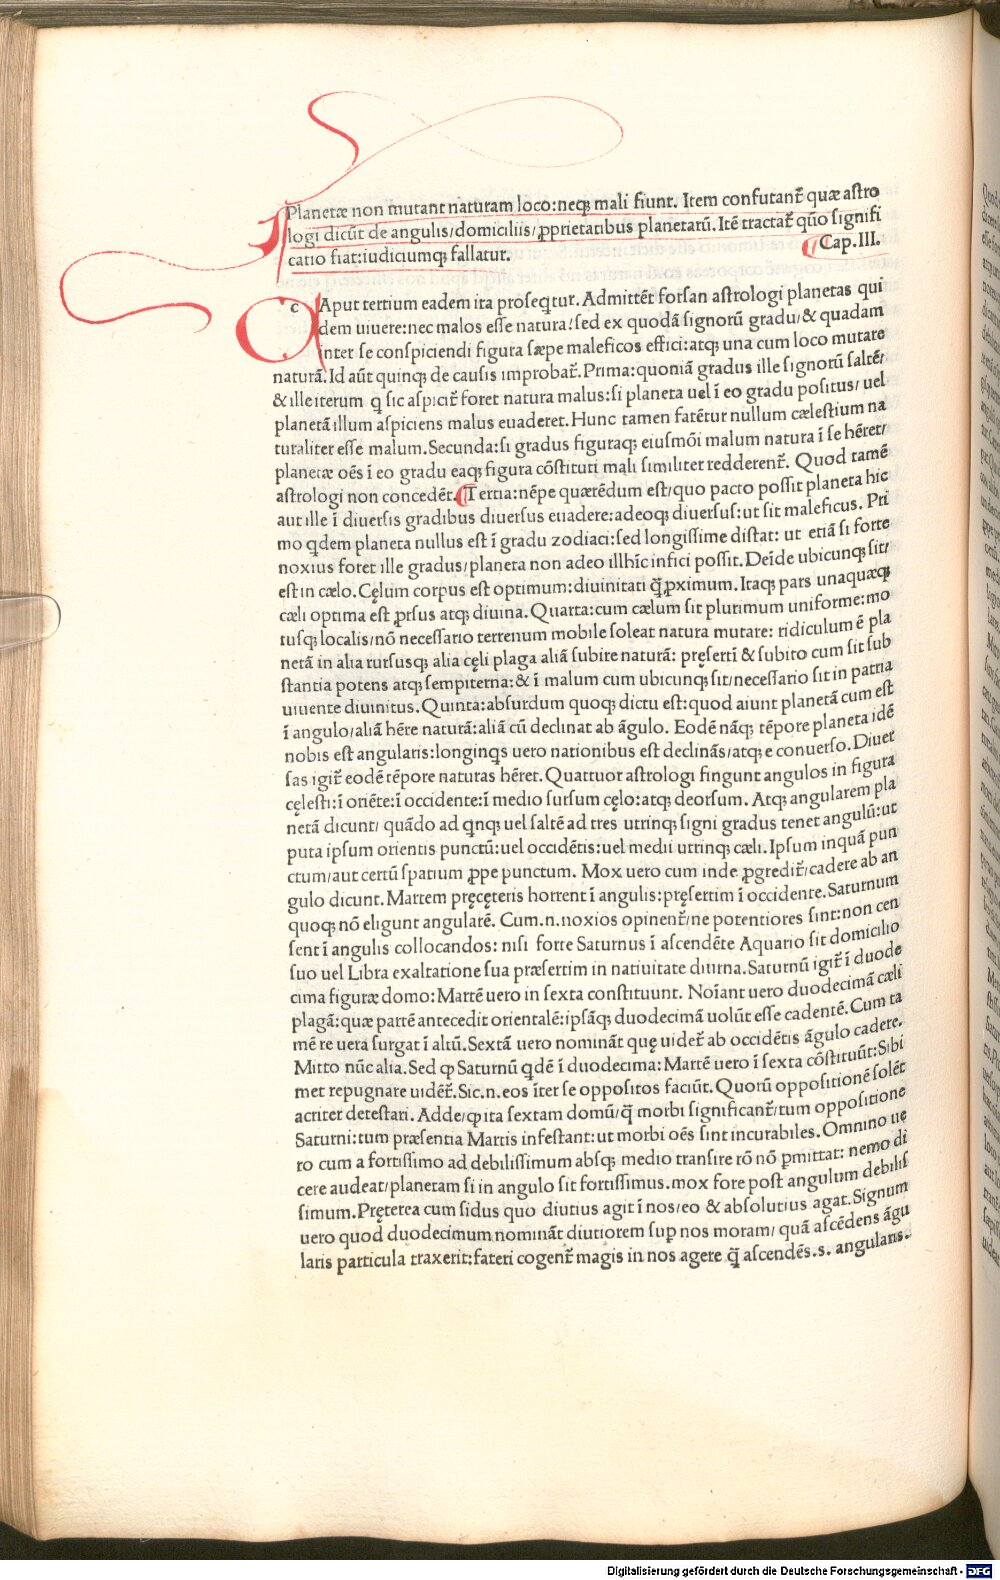 Planetæ non mutant naturam loco:neqꝫ mali fiunt. Item confutant̃ quæ astro
logi dicũt de angulis/domiciliis/ꝓprietatibus planetarũ. Itẽ tractat̃ quõ signifi
catio fiat:iudiciumqꝫ fallatur. Cap.III.
cAput tertium eadem ita proseqtur. Admittẽt forsan astrologi planetas qui
dem uiuere:nec malos esse natura/sed ex quodã signorũ gradu/& quadam
inter se conspiciendi figura sæpe maleficos effici:atqꝫ una cum loco mutare
naturã. Id aũt quinqꝫ de causis improbat̃. Prima:quoniã gradus ille signorũ saltẽ/
& ille iterum q sic aspicit̃ foret natura malus:si planeta uel ĩ eo gradu positus/ uel
planetã illum aspiciens malus euaderet. Hunc tamen fatẽtur nullum cælestium na
turaliter esse malum. Secunda:si gradus figuraqꝫ eiusmõi malum natura ĩ se hẽret/
planetæ oẽs ĩ eo gradu eaqꝫ figura cõstituti mali similiter redderent̃. Quod tamẽ
astrologi non concedẽt. Tertia:nẽpe quærẽdum est/quo pacto possit planeta hic
aut ille ĩ diuersis gradibus diuersus euadere:adeoqꝫ diuersus:ut sit maleficus. Pri
mo qdem planeta nullus est ĩ gradu zodiaci:sed longissime distat: ut etiã si forte
noxius foret ille gradus/planeta non adeo illhĩc infici possit. Deĩde ubicunqꝫ sit/
est in cælo. Cęlum corpus est optimum:diuinitati q̃ꝓximum. Itaqꝫ pars unaquæqꝫ
cæli optima est ꝓrsus atqꝫ diuina. Quarta:cum cælum sit plurimum uniforme:mo
tusqꝫ localis/nõ necessario terrenum mobile soleat natura mutare: ridiculum ẽ pla
netã in alia rursusqꝫ alia cęli plaga aliã subire naturã: pręsertĩ & subito cum sit sub
stantia potens atqꝫ sempiterna:& ĩ malum cum ubicunqꝫ sit/necessario sit in patria
uiuente diuinitus. Quinta:absurdum quoqꝫ dictu est:quod aiunt planetã cum est
ĩ angulo/aliã hẽre naturã:aliã cũ declinat ab ãgulo. Eodẽ nãqꝫ tẽpore planeta idẽ
nobis est angularis:longinqs uero nationibus est declinãs/atqꝫ e conuerso. Diuer
sas igit̃ eodẽ tẽpore naturas hẽret. Quattuor astrologi fingunt angulos in figura
cęlesti:ĩ oriẽte:ĩ occidente:ĩ medio sursum cęlo:atqꝫ deorsum. Atqꝫ angularem pla
netã dicunt/ quãdo ad qnqꝫ uel saltẽ ad tres utrinqꝫ signi gradus tenet angulũ:ut
puta ipsum orientis punctũ:uel occidẽtis:uel medii utrinqꝫ cæli. Ipsum inquã pun
ctum/aut certũ spatium ꝓpe punctum. Mox uero cum inde ꝓgredit̃/cadere ab an
gulo dicunt. Martem pręcęteris horrent ĩ angulis:pręsertim ĩ occidente. Saturnum
quoqꝫ nõ eligunt angularẽ. Cum.n.noxios opinent̃/ne potentiores sint:non cen
sent ĩ angulis collocandos: nisi forte Saturnus ĩ ascendẽte Aquario sit domicilio
suo uel Libra exaltatione sua præsertim in natiuitate diurna. Saturnũ igit̃ ĩ duode
cima figuræ domo: Martẽ uero in sexta constituunt. Noĩant uero duodecimã cæli
plagã:quæ partẽ antecedit orientalẽ:ipsãqꝫ duodecimã uolũt esse cadentẽ. Cum ta
mẽ re uera surgat ĩ altũ. Sextã uero nominãt quę uidet̃ ab occidẽtis ãgulo cadere.
Mitto nũc alia. Sed ꝙ Saturnũ qdẽ ĩ duodecima: Martẽ uero ĩ sexta cõstituũt: Sibi
met repugnare uidẽt̃. Sic.n.eos ĩter se oppositos faciũt. Quorũ oppositionẽ solẽt
acriter detestari. Adde/ꝙ ita sextam domũ/q̃ morbi significant̃/tum oppositione
Saturni:tum præsentia Martis infestant:ut morbi oẽs sint incurabiles. Omnino ue
ro cum a fortissimo ad debilissimum absqꝫ medio transire rõ nõ ꝑmittat: nemo di
cere audeat/planetam si in angulo sit fortissimus.mox fore post angulum debilis
simum. Pręterea cum sidus quo diutius agit ĩ nos/eo & absolutius agat. Signum
uero quod duodecimum nominãt diutiorem sup nos moram/ quã ascẽdens ãgu
laris particula traxerit:fateri cogent̃ magis in nos agere q̃ ascendẽs.s. angularis.
Digitalisierung gefördert durch die Deutsche Forschungsgemeinschaft - DFG